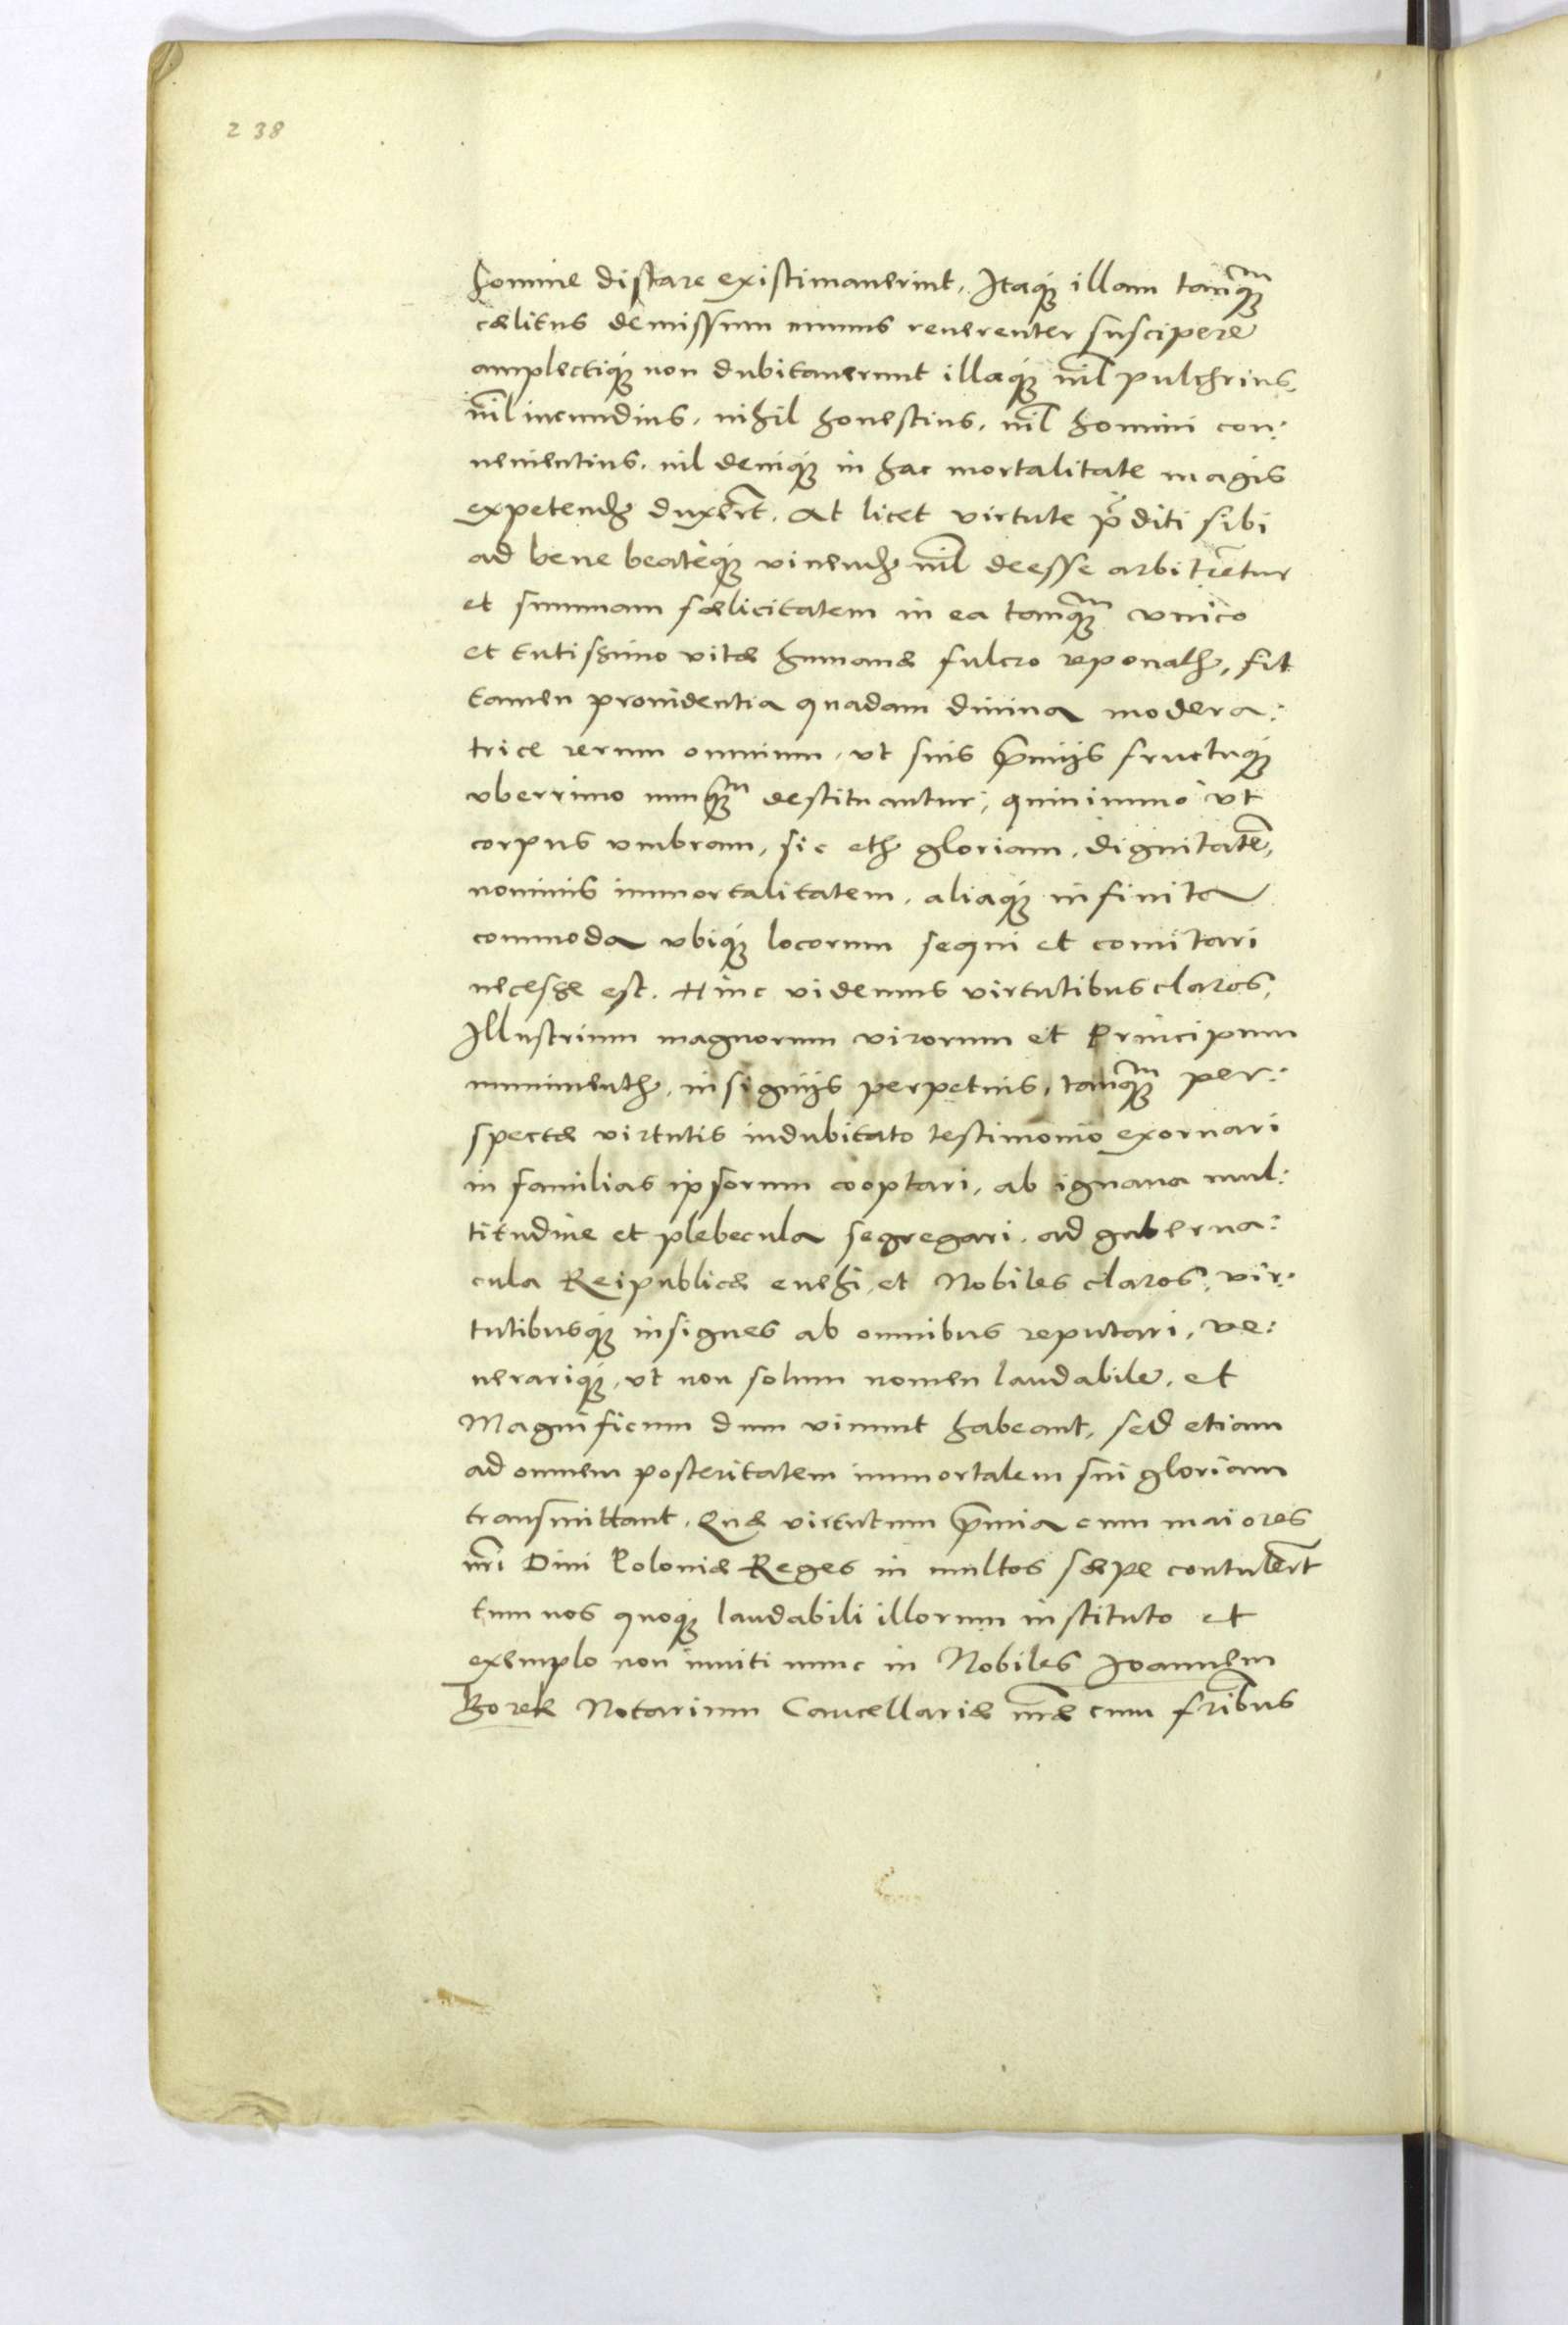 238
homine distare existimauerint. Itaq; illam tanq̃
cælitus demissum munus reuerenter suscipere
amplectiq; non dubitauerunt illaq; nĩl pulchrius,
nĩl iucundius, nihil honestius, nĩl homini con:
uenientius, nil deniq; in hac mortalitate magis
expetendꝫ duxer̃t. At licet virtute p̃diti sibi
ad bene beateq; viuendꝫ nĩl deesse arbitrẽtur
et summam fælicitatem in ea tanq̃ vnico
et tutissimo vitæ humanæ fulcro reponatꝫ, fit
tamen prouidentia quadam diuina modera:
trice rerum omnium, vt suis p̃mijs fructuq;
vberrimo nunq̃ destituantur, quinimmo vt
corpus vmbram, sic etꝫ gloriam, dignitatẽ,
nominis immortalitatem, aliaq; infinita
commoda vbiq; locorum sequi et comitari
necesse est. Hinc videmus virtutibus claros,
Illustrium magnorum virorum et Principum
munimentꝫ, insignijs perpetuis, tanq̃ per:
spectæ virtutis indubitato testimonio exornari
in familias ipsorum cooptari, ab ignaua mul:
titudine et plebecula segregari, ad guberna:
cula Reipublicæ euehi, et Nobiles claros, vir:
tutibusq; insignes ab omnibus reputari, ve:
nerariq;, vt non solum nomen laudabile, et
Magnificum dum viuunt habeant, sed etiam
ad omnem posteritatem immortalem sui gloriam
transmittant. Quæ virtutum p̃mia cum maiores
nr̃i Diui Poloniæ Reges in multos sæpe contuler̃t
tum nos quoq; laudabili illorum instituto et
exemplo non inuiti nunc in Nobiles Joannem
Borek Notarium Cancellariæ nr̃æ cum fr̃ibus